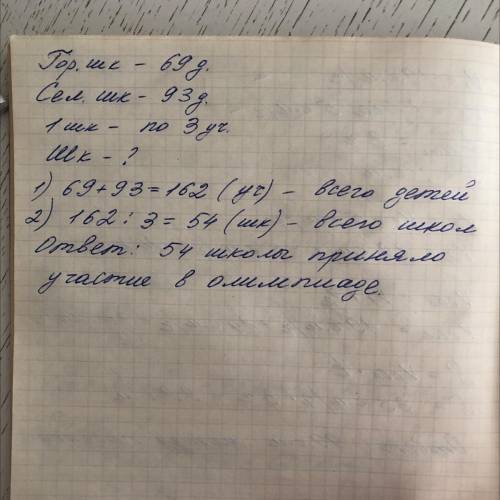 Гор. шк - 69 д.
Сел. шк - 93 д.
1 шк - по 3 уч.
Шк - ?
1) 69 + 93 = 162 (уч) - всего детей
2) 162 : 3 = 54 (шк) - всего школ
Ответ: 54 школы приняло
участие в олимпиаде.